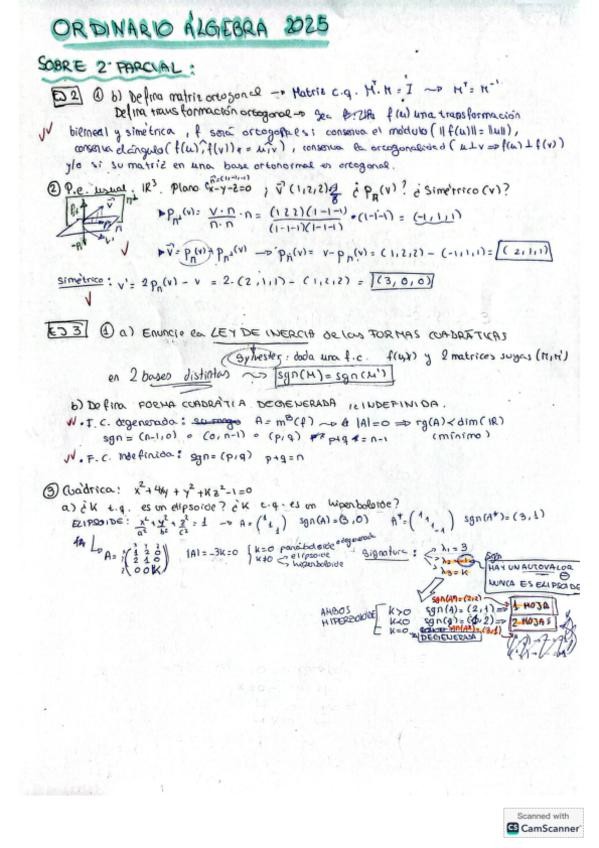 ORDINARIO ÁLGEBRA 2025
SOBRE 2º PARCIAL:
EJ 2 ① b) Defina matriz ortogonal → Matriz c.q. Mᵗ·M = I ⟿ Mᵗ = M⁻¹
Defina transformación ortogonal → Sea f(u) una transformación
bilineal y simétrica, f será ortogonal si: conserva el módulo (||f(u)|| = ||u||),
conserva el ángulo (f(u)^f(v) = u^v), conserva la ortogonalidad (u⊥v ⇒ f(u)⊥f(v))
y/o si su matriz en una base ortonormal es ortogonal.
② P.e. usual. ℝ³. Plano x-y-z=0 ; v⃗ (1,2,2) ¿Pπ(v)? ¿Simétrico(v)?
▸ Pπ⊥(v) = v·n / n·n · n = (1 2 2)(1 -1 -1) / (1 -1 -1)(1 -1 -1) · (1 -1 -1) = (-1,1,1)
▸ v⃗ = Pπ(v) + Pπ⊥(v) → Pπ(v) = v - Pπ⊥(v) = (1,2,2) - (-1,1,1) = (2,1,1)
Simétrico: v' = 2Pπ(v) - v = 2·(2,1,1) - (1,2,2) = (3,0,0)
EJ 3 ① a) Enuncie la LEY DE INERCIA de las FORMAS CUADRÁTICAS
Sylvester: dada una f.c. y 2 matrices suyas (M,M')
en 2 bases distintas ⟿ sgn(M) = sgn(M')
b) Defina FORMA CUADRÁTICA DEGENERADA e INDEFINIDA.
• F.C. degenerada: A = mᴮ(f) → |A|=0 ⇒ rg(A) < dim(ℝ)
sgn = (n-1,0) o (0,n-1) o (p,q) p+q = n-1 (mínimo)
• F.C. Indefinida: sgn = (p,q) p+q=n
③ Cuádrica: x²+4xy+y²+kz²-1=0
a) ¿K t.q. es un elipsoide? ¿K t.q. es un hiperboloide?
ELIPSOIDE: x²/a² + y²/b² + z²/c² = 1 → A = (1 1 1) sgn(A) = (3,0) A* = (1 1 1 -1) sgn(A*) = (3,1)
A = (1 2 0
2 1 0
0 0 K) |A| = -3K = 0
K=0 paraboloide o degenerada
K≠0 elipsoide
hiperboloide
Signatura:
λ₁ = 3
λ₃ = K
HAY UN AUTOVALOR ⊖
NUNCA ES ELIPSOIDE
AMBOS HIPERBOLOIDE
sgn(A*) = (2,2)
K>0 sgn(A) = (2,1) ⇒ 1 HOJA
K<0 ⇒ 2 HOJAS
K=0
DEGENERADA
Scanned with
CS CamScanner